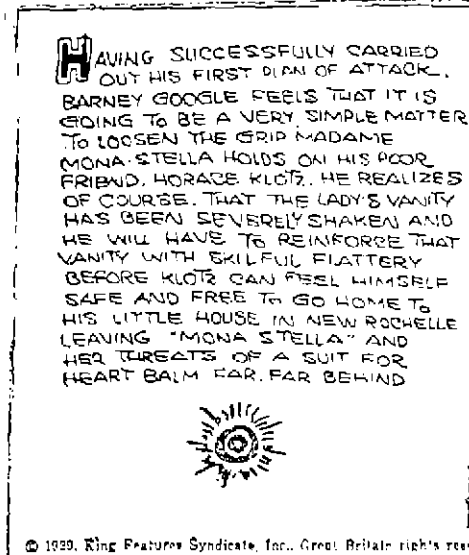 HAVING SUCCESSFULLY CARRIED
OUT HIS FIRST PLAN OF ATTACK.
BARNEY GOOGLE FEELS THAT IT IS
GOING TO BE A VERY SIMPLE MATTER
TO LOOSEN THE GRIP MADAME
MONA-STELLA HOLDS ON HIS POOR
FRIEND, HORACE KLOTZ. HE REALIZES
OF COURSE. THAT THE LADY'S VANITY
HAS BEEN SEVERELY SHAKEN AND
HE WILL HAVE TO REINFORCE THAT
VANITY WITH SKILFUL FLATTERY
BEFORE KLOTZ CAN FEEL HIMSELF
SAFE AND FREE TO GO HOME TO
HIS LITTLE HOUSE IN NEW ROCHELLE
LEAVING "MONA STELLA" AND
HER THREATS OF A SUIT FOR
HEART BALM FAR, FAR BEHIND
© 1929, King Features Syndicate, Inc., Great Britain rights